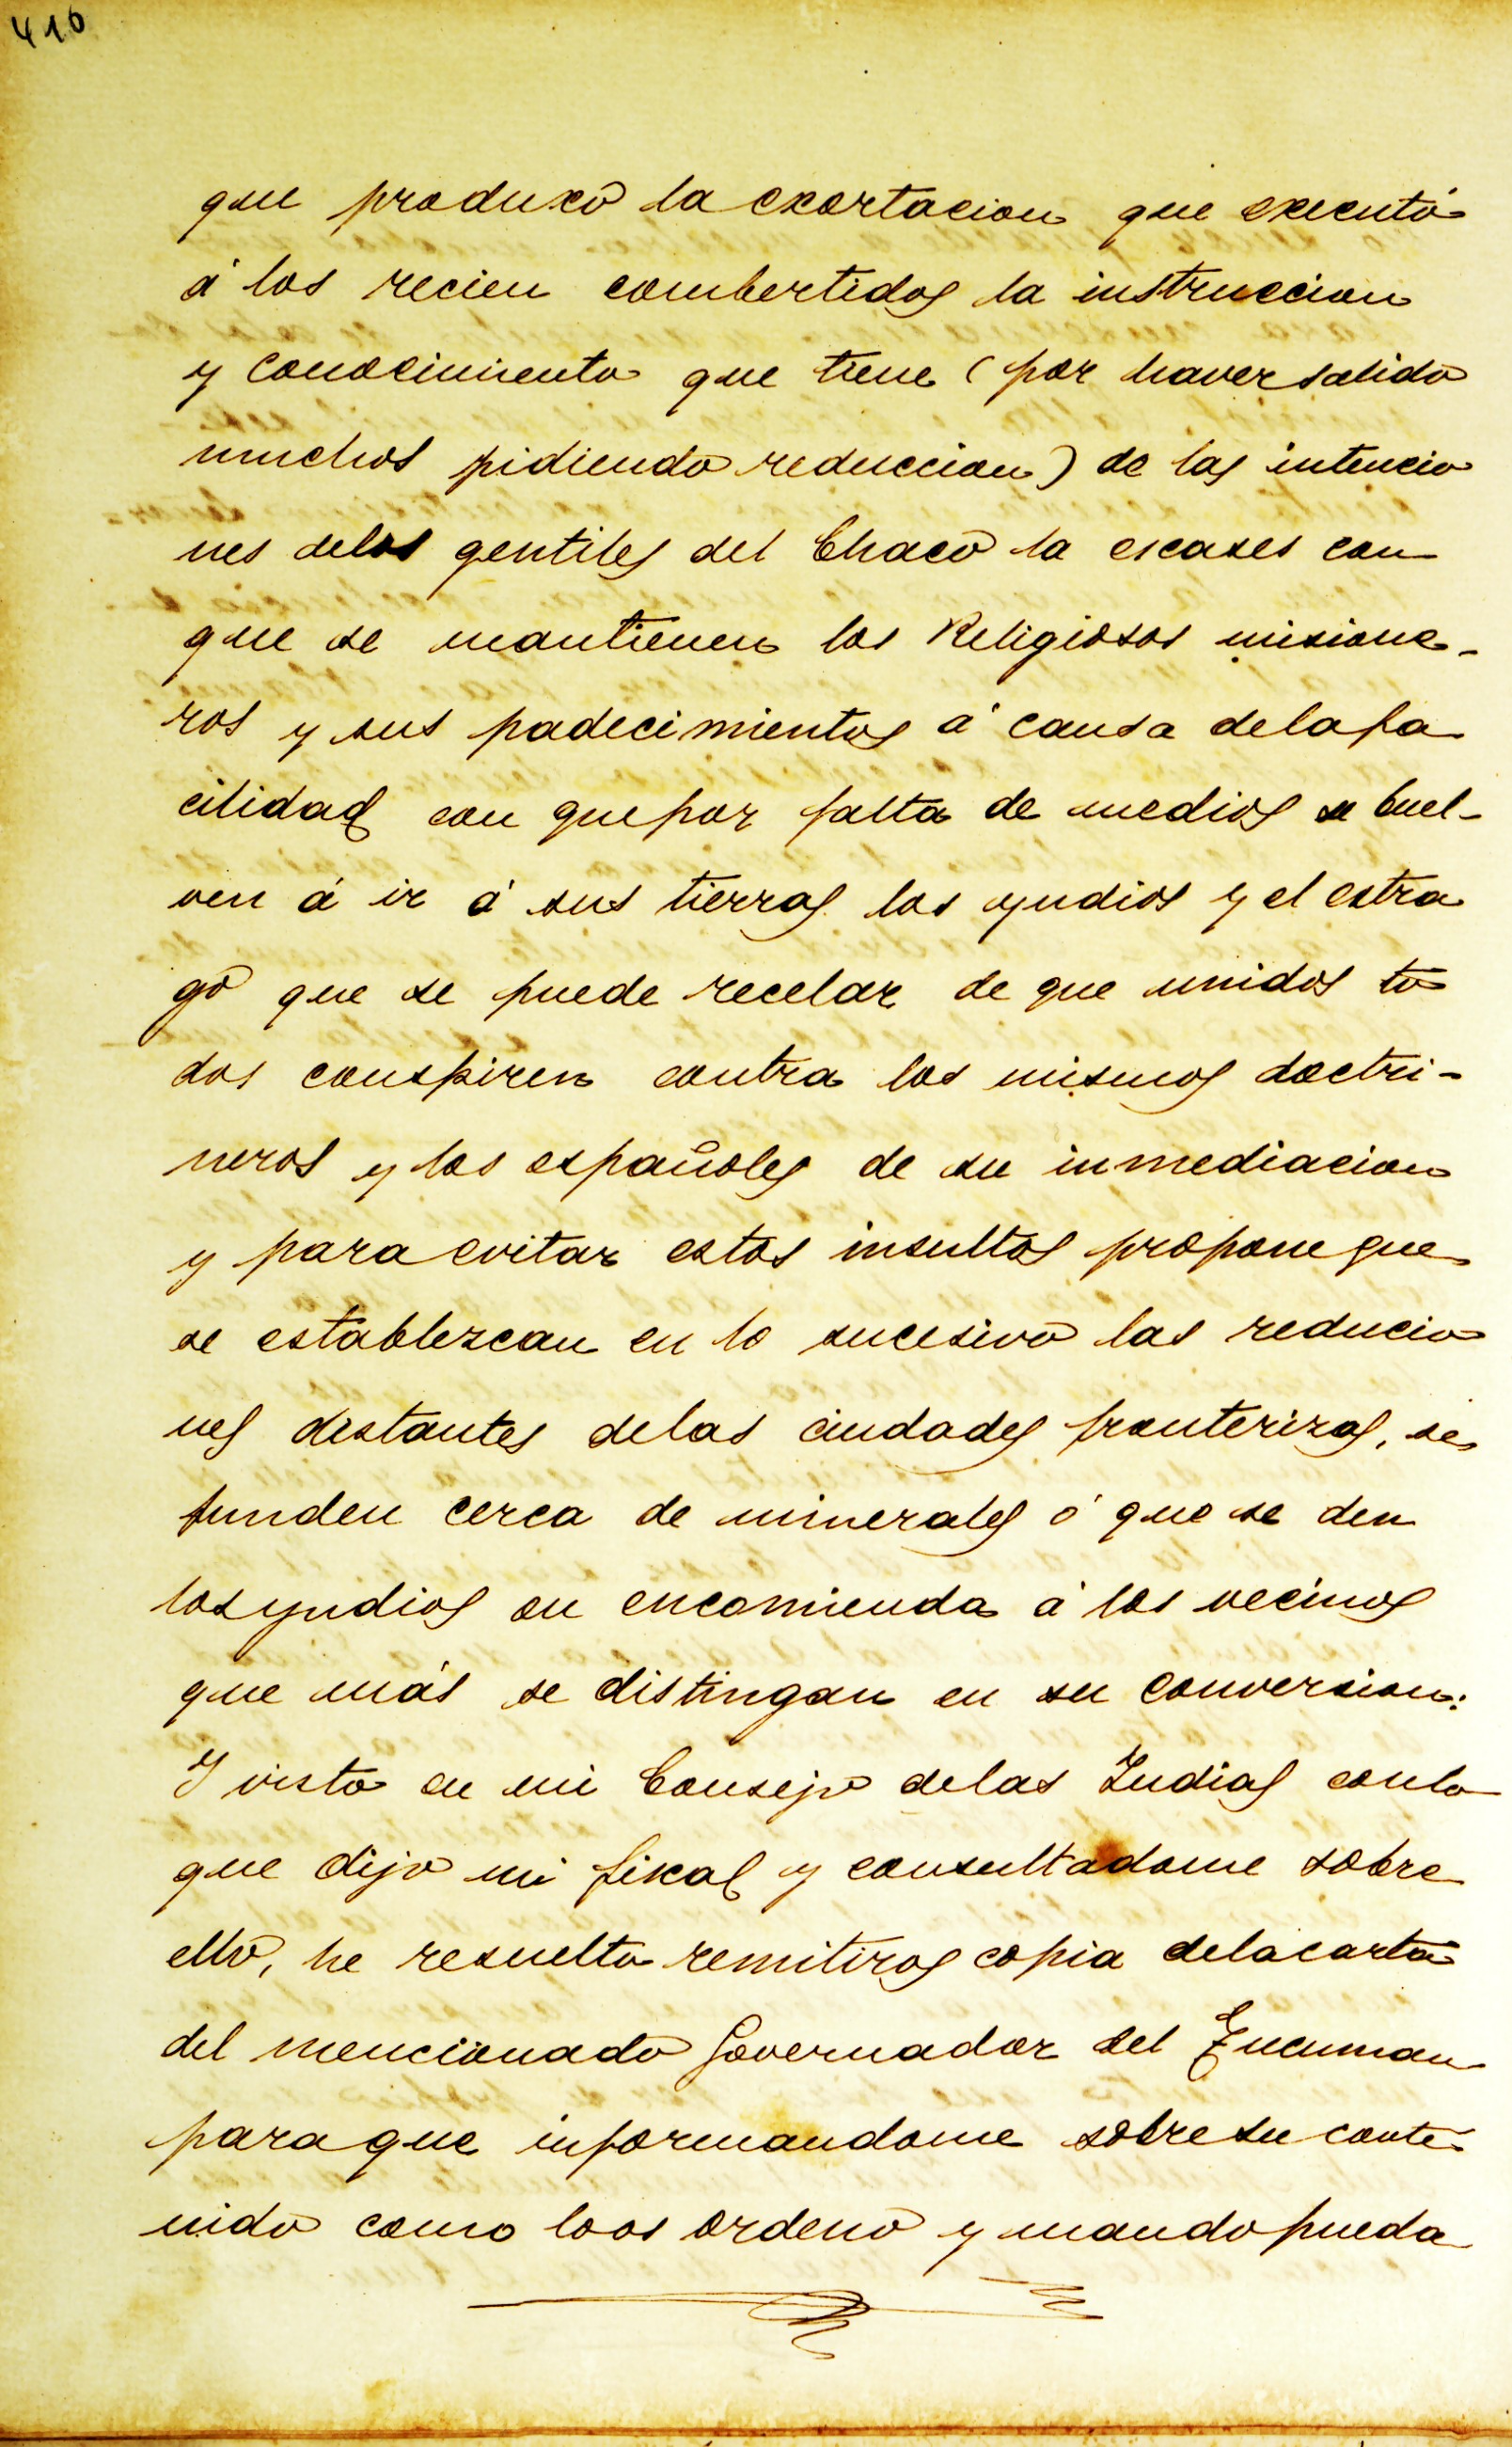 416
que produxo la exortacion que executó
á los recien combertidos la instruccion
y conocimiento que tiene (por haver salido
muchos pidiendo reduccion) de las intencio
nes delos gentiles del Chaco la escases con
que se mantienen los Religiosos misione-
ros y sus padecimientos á causa dela fa
cilidad con que por falta de medios se buel-
ven á ir á sus tierras los yndios y el estra
go que se puede recelar de que unidos to
dos conspiren contra los mismos doctri-
neros y los españoles de su inmediacion
y para evitar estos insultos propone que
se establezcan en lo sucesivo las reducio
nes distantes delas ciudades fronterizas, se
funden cerca de minerales ó que se den
los yndios en encomienda á los vecinos
que más se distingan en su conversion:
Y visto en mi Consejo delas Indias con lo
que dijo mi fiscal y consultadome sobre
ello, he resuelto remitiros copia dela carta
del mencionado Governador del Tucuman
para que informandome sobre su conte
nido como lo os ordeno y mando pueda